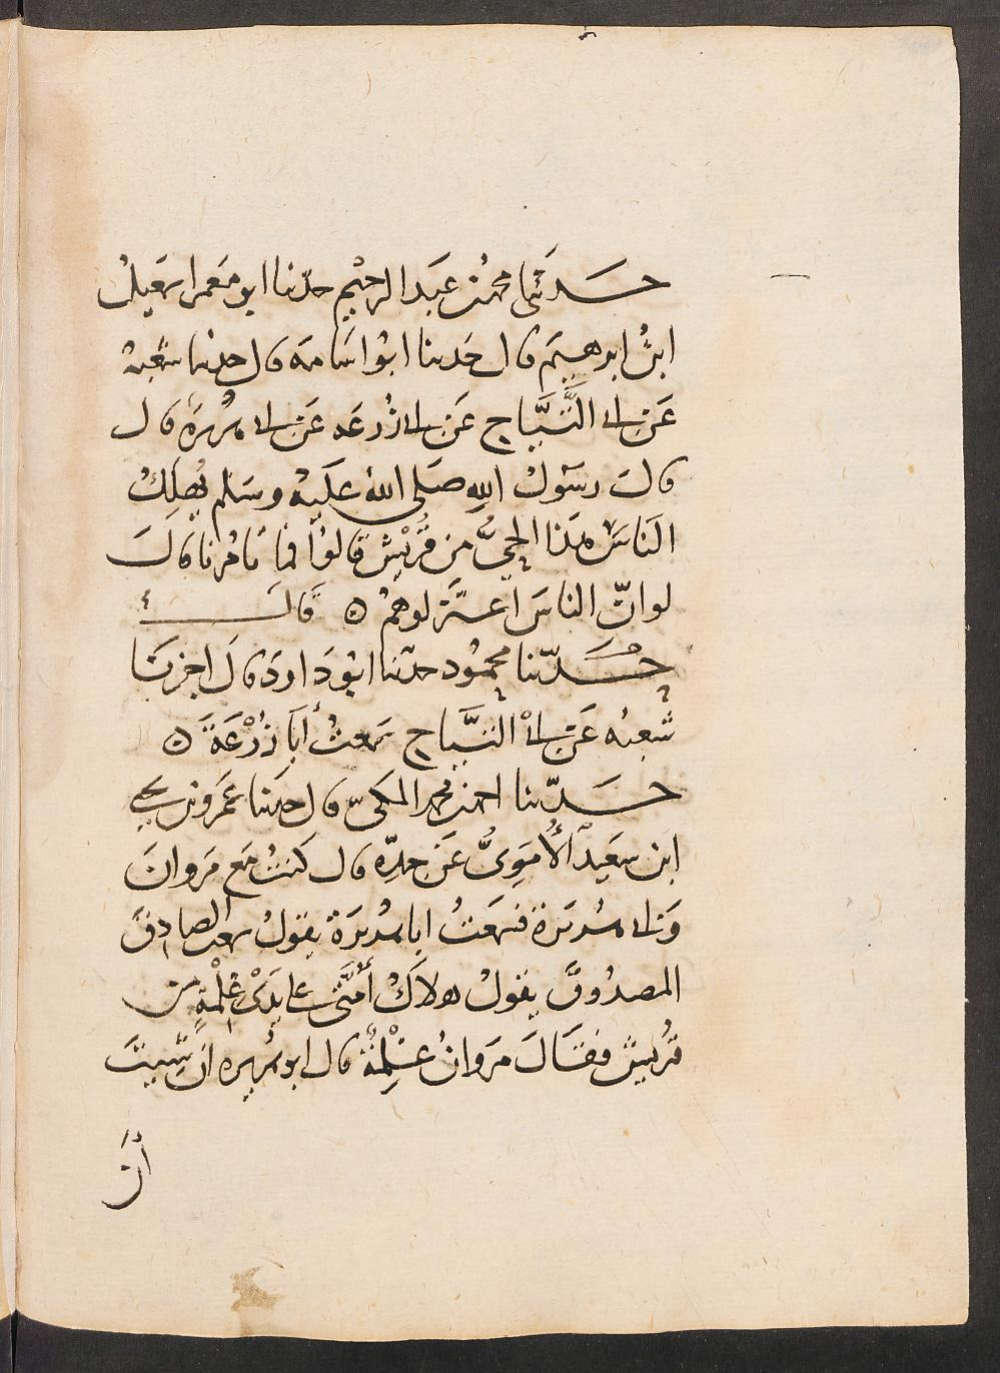 حدثني محمد بن عبد الرحيم حدثنا ابو معمر اسمعيل
ابن ابرهيم قال حدثنا ابو اسامه قال حدثنا شعبه
عن ابي التياح عن ابي زرعه عن ابي هريرة قال
قال رسول الله صلى الله عليه وسلم يهلك
الناس هذا الحي من قريش قالوا فما تامرنا قال
لو ان الناس اعتزلوهم ٥ قال
حدثنا محمود حدثنا ابو داود قال اخبرنا
شعبه عن ابي التياح سمعت أبا زرعة ٥
حدثنا احمد بن محمد المكي قال حدثنا عمرو بن يحيى
ابن سعيد الأموي عن جده قال كنت مع مروان
وابي هريرة فسمعت ابا هريرة يقول سمعت الصادق
المصدوق يقول هلاك أمتي على يدي غلمة من
قريش فقال مروان غلمة قال ابو هريره ان شيت
أن